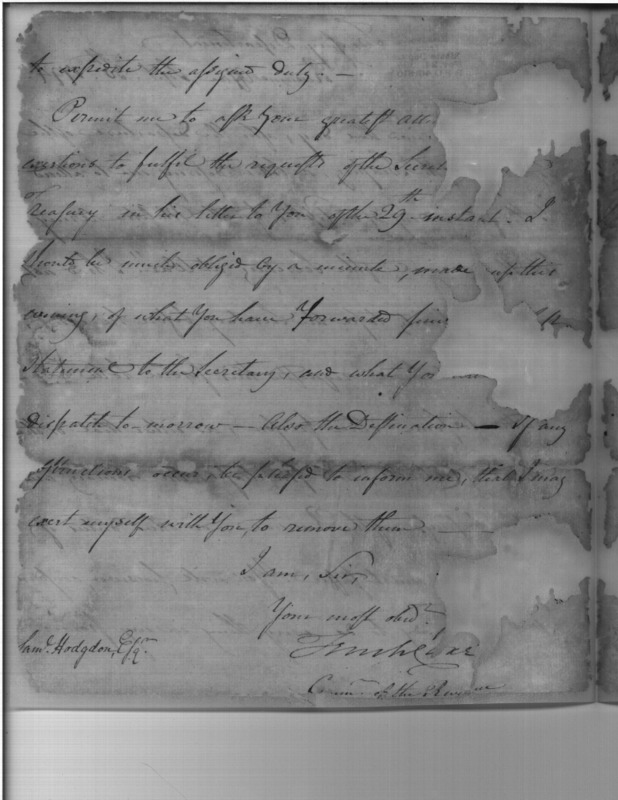 to expedite the assigned duty. —
Permit me to ask Your greatest
exertions to fulfil the requests of the
Treasury in his letter to You of the 29th instant. I
would be much obliged by a minute, made up this
evening, of what You have Forwarded
statement to the Secretary, and what
dispatch to-morrow — Also the Destination — If any
obstructions occur, be pleased to inform me, that I may
exert myself with You, to remove them. —
I am, Sir,
Your most obedt.
Saml. Hodgdon, Esqr.
Tench Coxe
of the Revenue